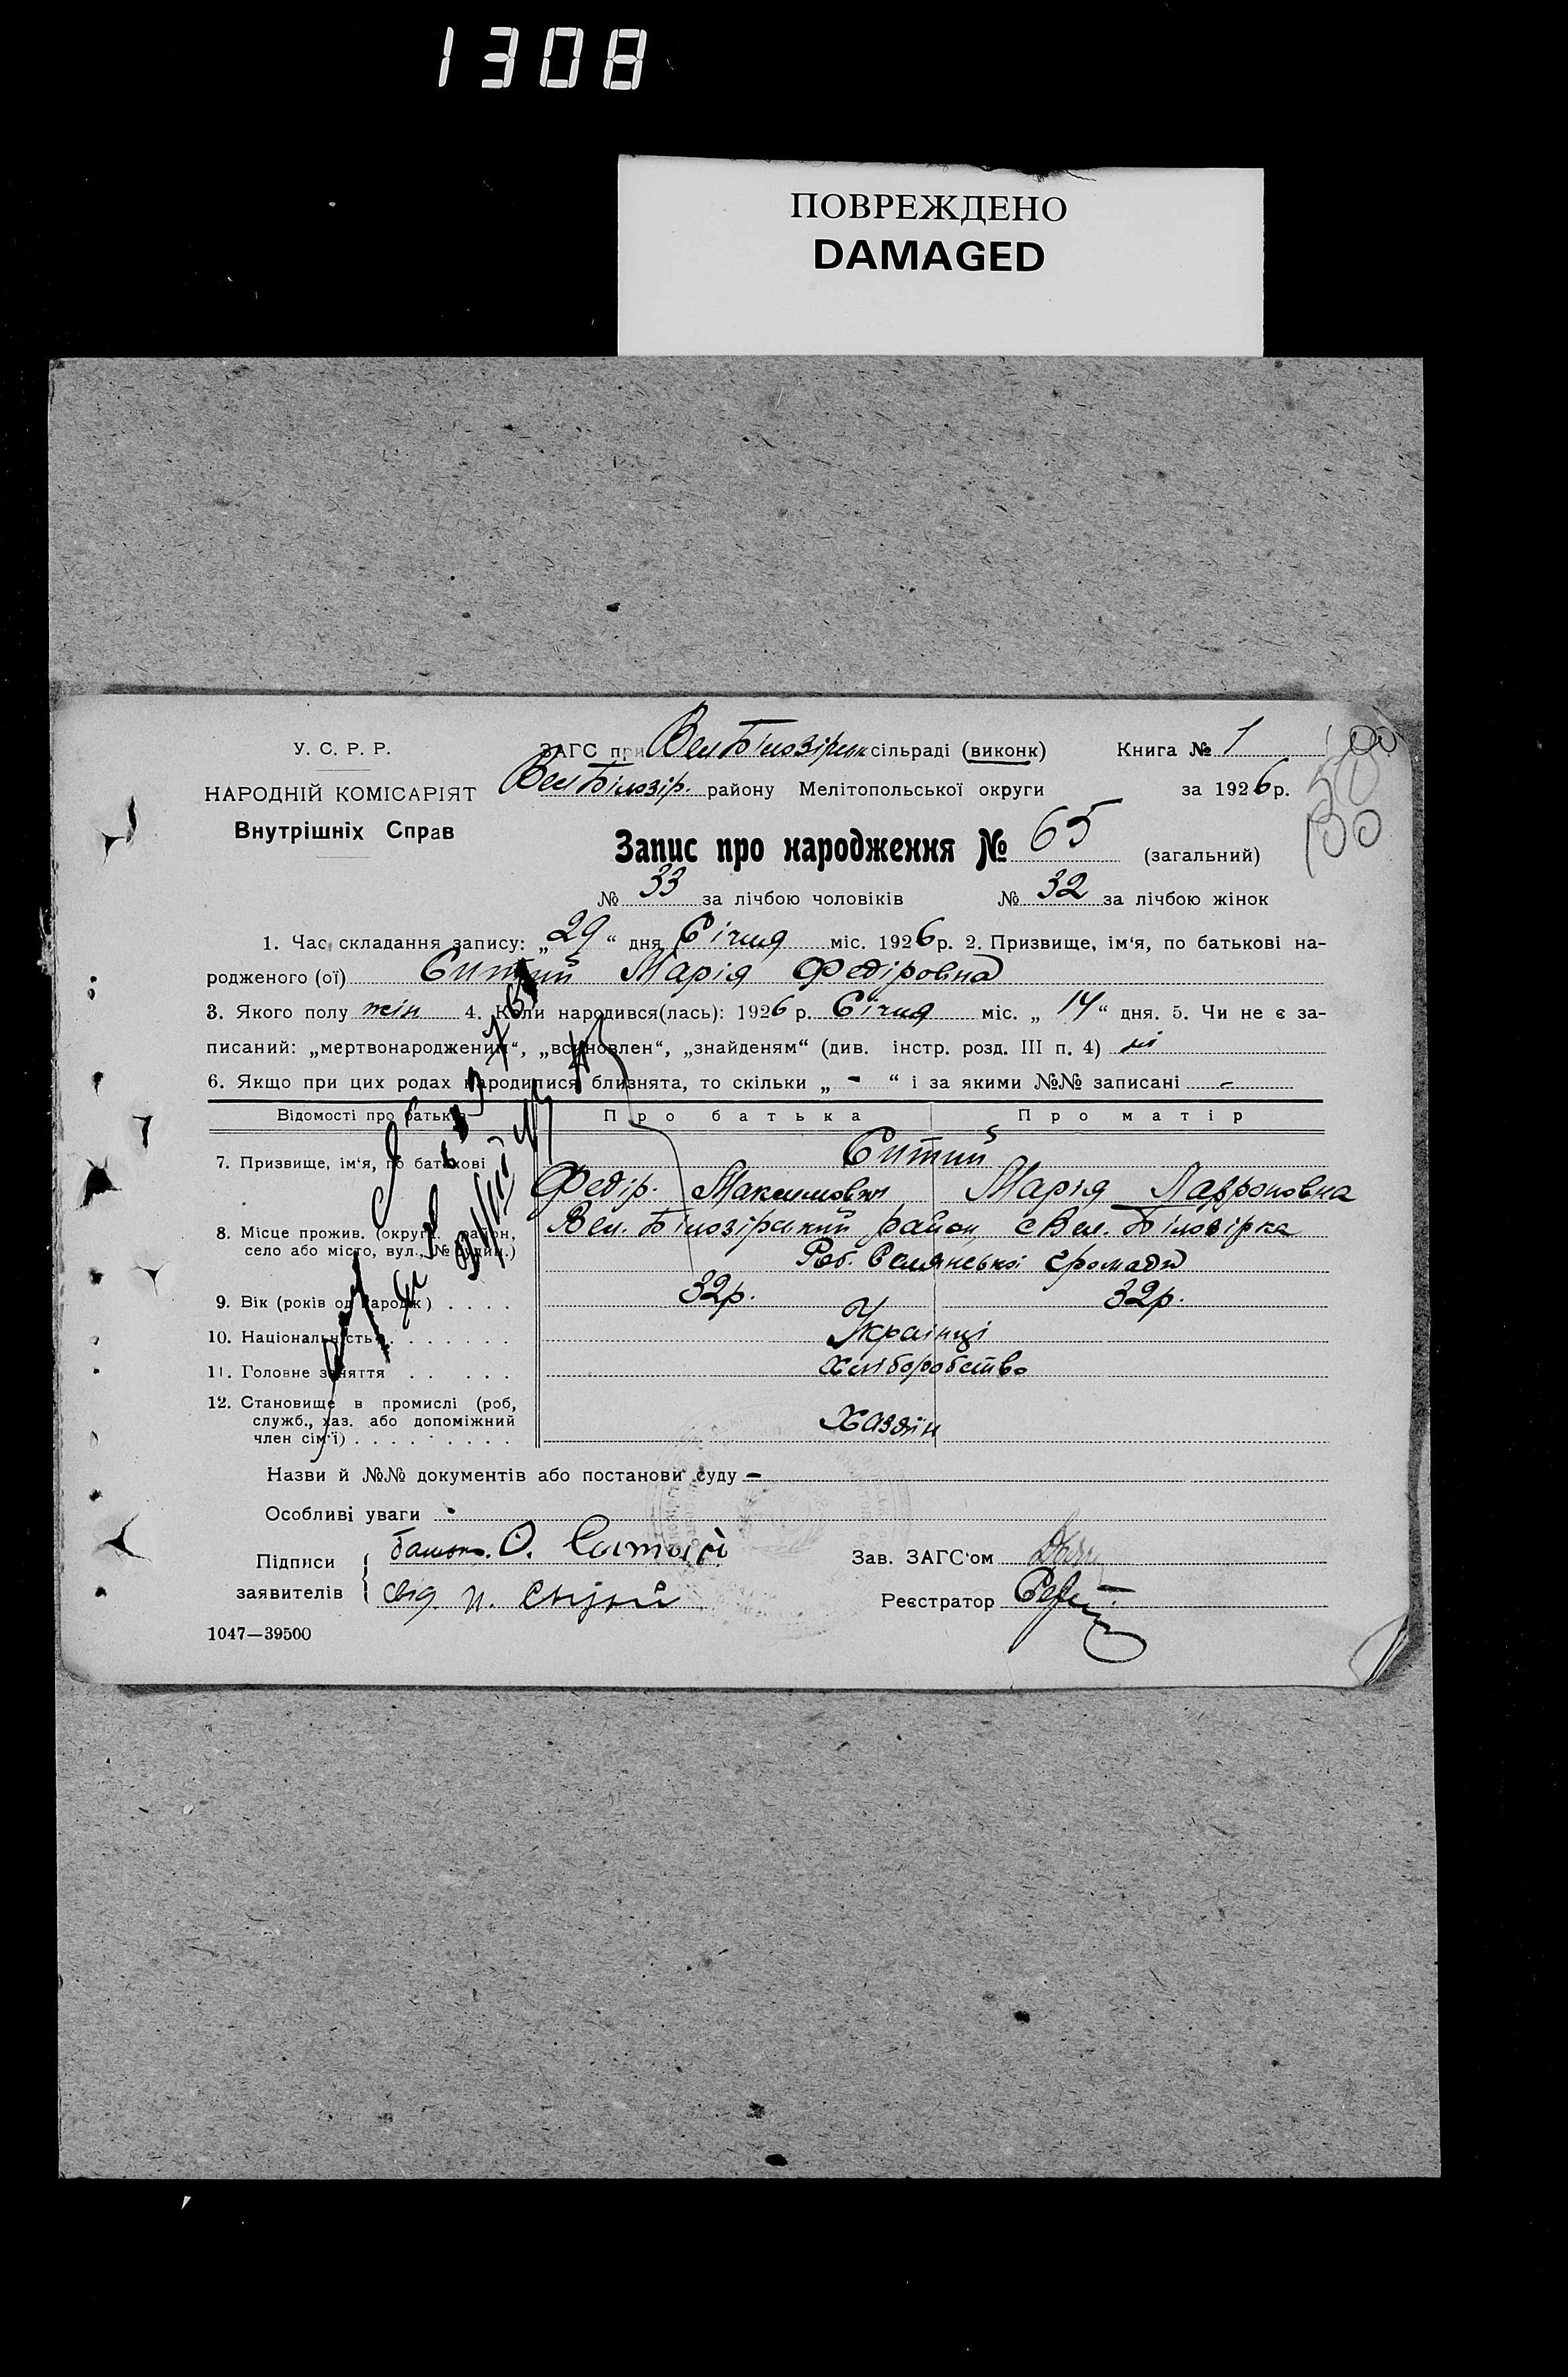 1308
ПОВРЕЖДЕНО
DAMAGED
У. С. Р. Р.
НАРОДНІЙ КОМІСАРІЯТ
Внутрішніх Справ
ЗАГС при Вел Білозірськ сільраді (виконк) Книга № 1
Вел Білозір. району Мелітопольської округи за 1926 р.
100
50
100
Запис про народження № 65 (загальний)
№ 33 за лічбою чоловіків № 32 за лічбою жінок
1. Час складання запису: „29“ дня Січня міс. 1926 р. 2. Призвище, ім‘я, по батькові на-
родженого (ої) Ситий Марія Федіровна
3. Якого полу жін 4. Коли народився(лась): 1926 р. Січня міс. „14“ дня. 5. Чи не є за-
писаний: „мертвонароджений“, „всиновлен“, „знайденям“ (див. інстр. розд. III п. 4) ні
6. Якщо при цих родах народилися близнята, то скільки „ - “ і за якими №№ записані -
Відомості про батьків Про батька Про матір
7. Призвище, ім‘я, по батькові Ситий
Федір. Максимович Марія Лавроновна
8. Місце прожив. (округа. район,
село або місто, вул., № будин.)
Вел. Білозірський район, с Вел. Білозірка
Селянської громади
9. Вік (років од народж) . . . . 32р. 32р.
10. Національність . . . . . . . Українці
11. Головне заняття . . . . . Хліборобство
12. Становище в промислі (роб,
служб., хаз. або допоміжний
член сім‘ї) . . . . . . . . . Хазяїн
Назви й №№ документів або постанови суду -
Особливі уваги -
Підписи
заявителів
Ситий
свід.
Зав. ЗАГС‘ом
Реєстратор
1047—39500